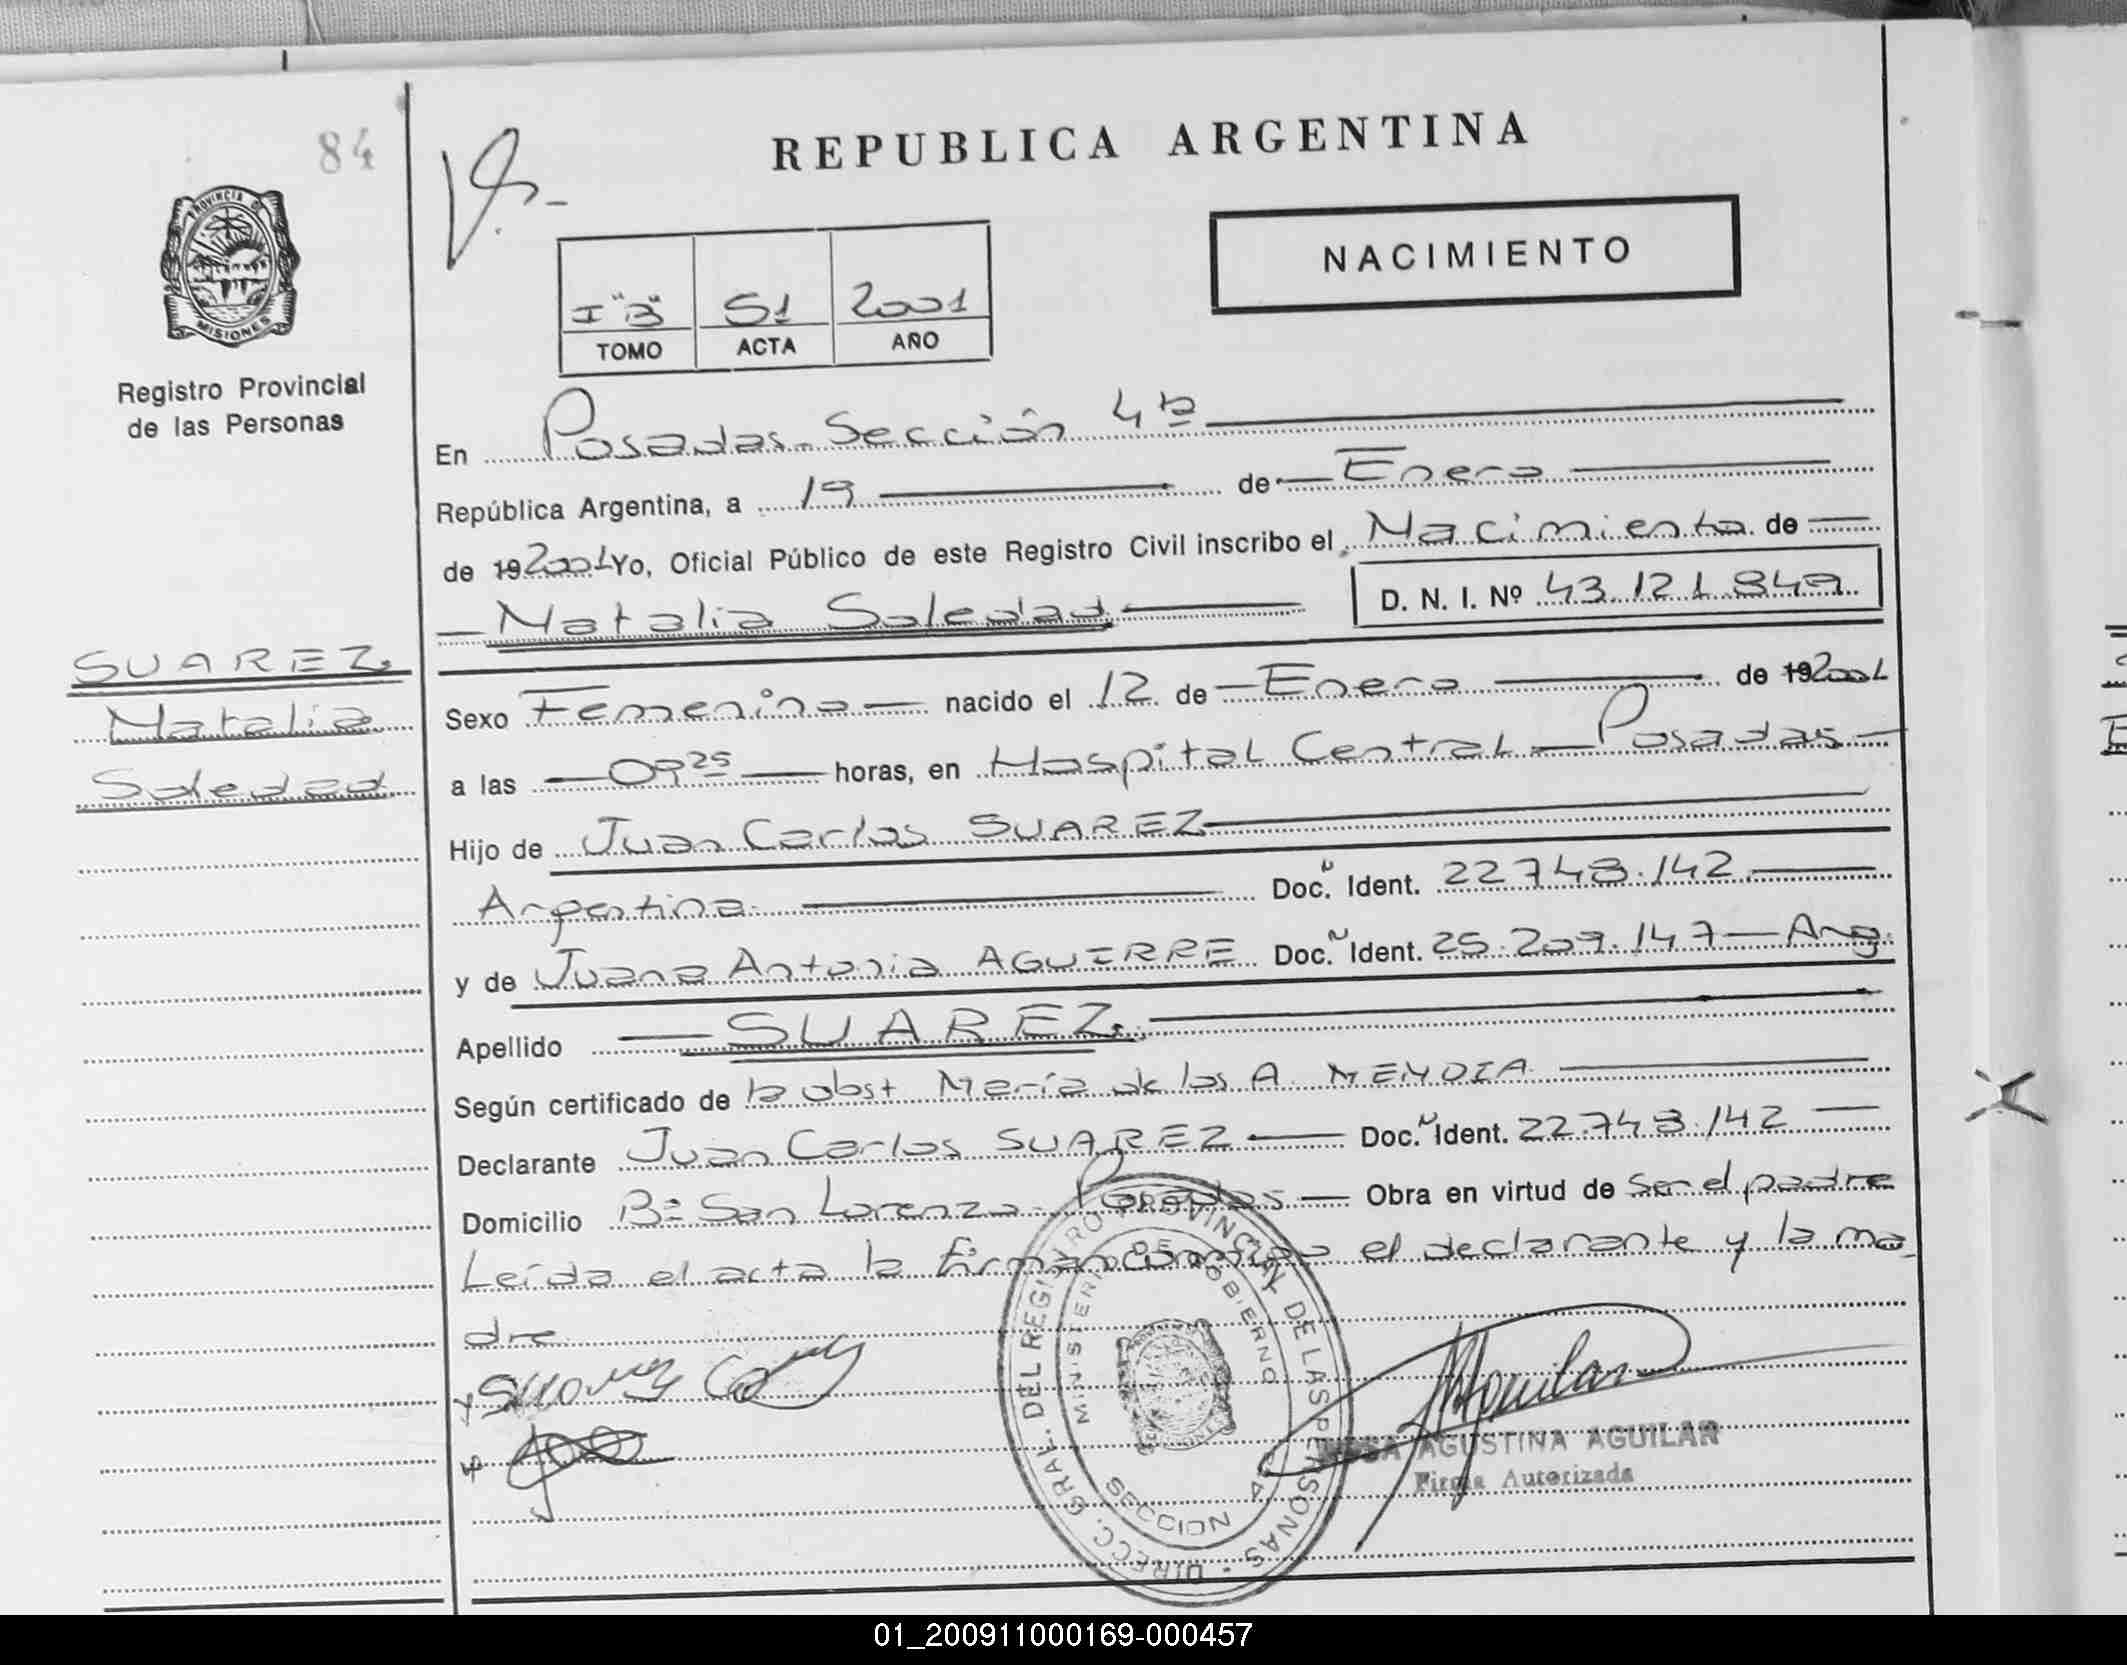 84
REPUBLICA ARGENTINA
PROVINCIA D
MISIONES
Registro Provincial
de las Personas
NACIMIENTO
I "B" 51 2001
TOMO ACTA AÑO
En Posadas - Sección 4ta
República Argentina, a 19 de Enero
de 19 2001 Yo, Oficial Público de este Registro Civil inscribo el Nacimiento de
Natalia Soledad D. N. I. Nº 43.121.847
SUAREZ
Natalia
Soledad
Sexo Femenino nacido el 12 de Enero de 19 2001
a las 09 25 horas, en Hospital Central - Posadas -
Hijo de Juan Carlos SUAREZ
Argentina Doc. N Ident. 22.748.142
y de Juana Antonia AGUIRRE Doc. N Ident. 25.209.147 - Arg.
Apellido SUAREZ.
Según certificado de la Obst María de los A.
Declarante Juan Carlos SUAREZ Doc. N Ident. 22.748.142
Domicilio Bº San Lorenzo - Posadas - Obra en virtud de ser el padre
Leída el acta la firman conmigo el declarante y la ma
dre
DIRECC. GRAL. DEL REGISTRO PROVINCIAL DE LAS PERSONAS
MINISTERIO DE GOBIERNO
SECCION 4
Aguilar
AGUSTINA AGUILAR
Firma Autorizada
01_200911000169-000457